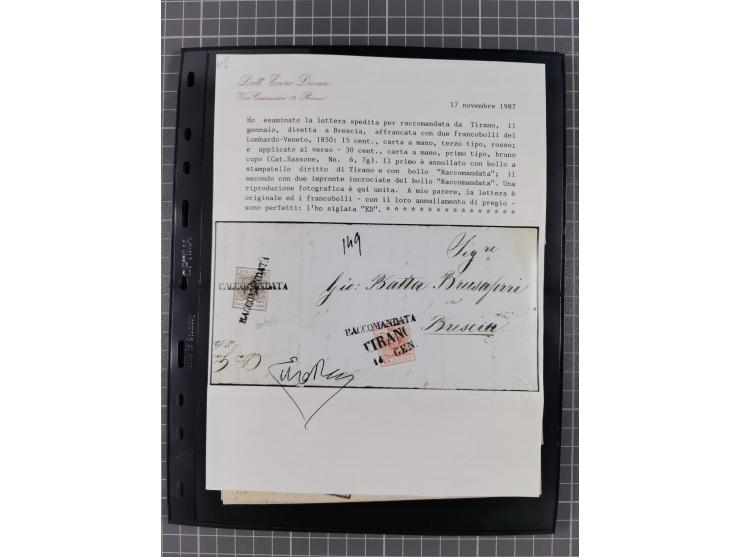 Dott. Enzo Diena
17 novembre 1987
Ho esaminato la lettera spedita per raccomandata da Tirano, 11
gennaio, diretta a Brescia, affrancata con due francobolli del
Lombardo-Veneto, 1850: 15 cent., carta a mano, terzo tipo, rosso;
e applicato al verso - 30 cent., carta a mano, primo tipo, bruno
cupo (Cat.Sassone, Nn. 6, 7g). Il primo è annullato con bollo a
stampatello diritto di Tirano e con bollo "Raccomandata"; il
secondo con due impronte incrociate del bollo "Raccomandata". Una
riproduzione fotografica è qui unita. A mio parere, la lettera è
originale ed i francobolli - con il loro annullamento di pregio -
sono perfetti: l'ho siglata "ED". * * * * * * * * * * * * * * *
149
Sigre
Gio: Batta
in
Brescia
RACCOMANDATA
RACCOMANDATA
RACCOMANDATA
TIRANO
GEN.
OPTIMA